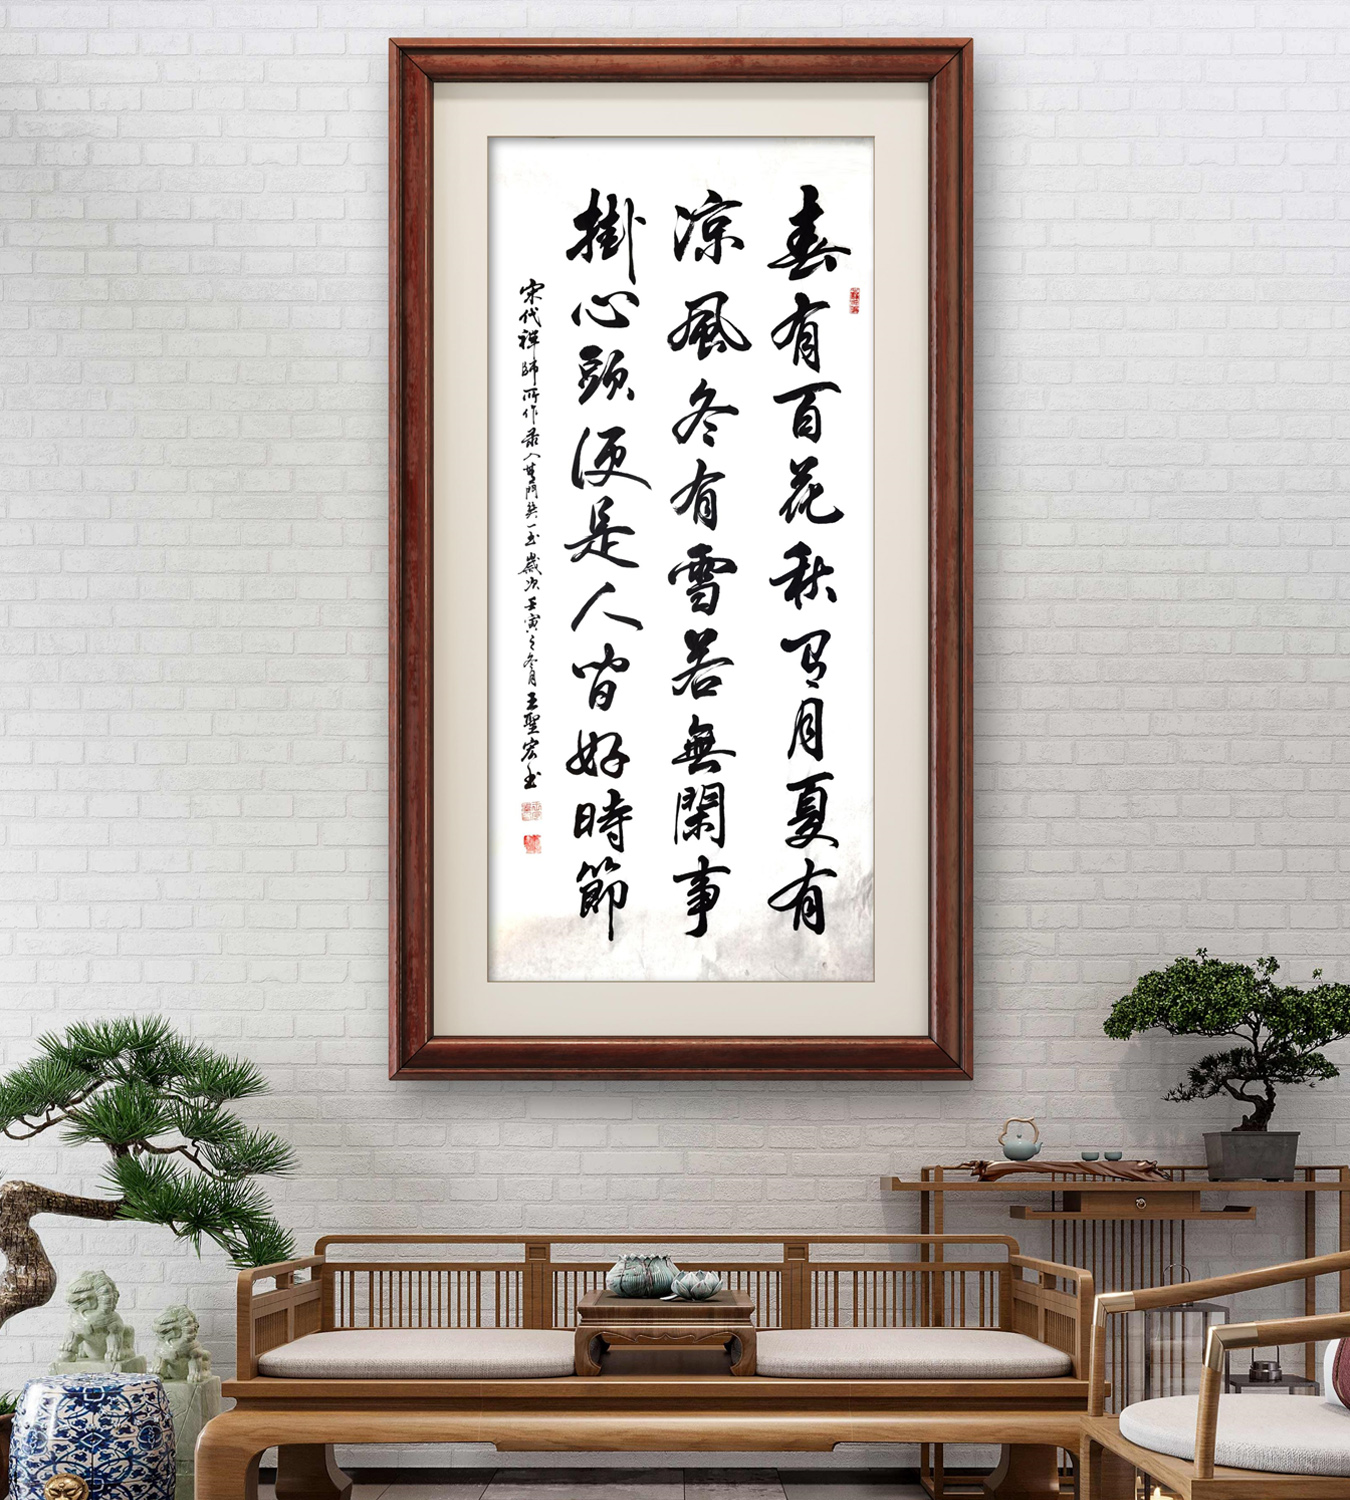 春有百花秋有月夏有
凉風冬有雪若無閑事
掛心頭便是人間好時節
宋代禅師所作 歲次壬寅之冬月王聖宏書